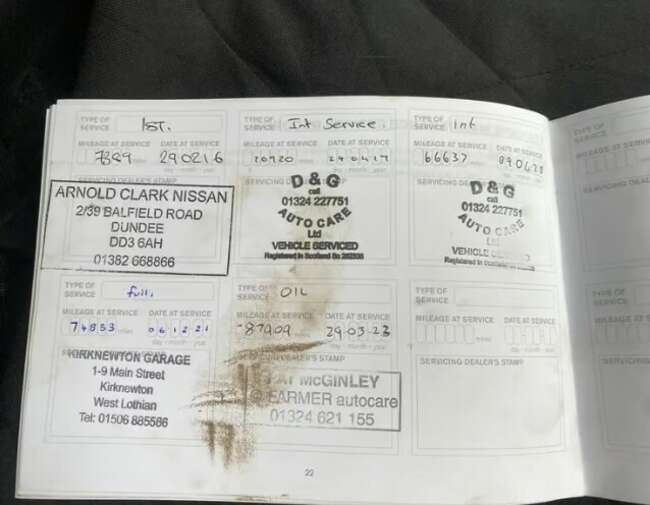 TYPE OF SERVICE 1st.
MILEAGE AT SERVICE DATE AT SERVICE
7389 miles 290216
day - month - year
SERVICING DEALER'S STAMP
ARNOLD CLARK NISSAN
2/39 BALFIELD ROAD
DUNDEE
DD3 6AH
01382 668866
TYPE OF SERVICE Int Service.
MILEAGE AT SERVICE DATE AT SERVICE
day - month - year
SERVICING DEALER'S STAMP
D & G
call
01324 227751
AUTO CARE
Ltd
VEHICLE SERVICED
Registered in Scotland No
TYPE OF SERVICE Int
MILEAGE AT SERVICE DATE AT SERVICE
66637
day - month - year
SERVICING DEALER'S STAMP
D & G
call
01324 227751
AUTO CARE
Ltd
VEHICLE
Registered in Scotland No
TYPE OF SERVICE full.
MILEAGE AT SERVICE DATE AT SERVICE
74853 miles 061221
day - month - year
KIRKNEWTON GARAGE
1-9 Main Street
Kirknewton
West Lothian
Tel: 01506 885586
TYPE OF SERVICE OIL
MILEAGE AT SERVICE DATE AT SERVICE
87909 29-03-23
day - month - year
DEALER'S STAMP
PAT McGINLEY
FARMER autocare
01324 621 155
TYPE OF SERVICE
MILEAGE AT SERVICE DATE AT SERVICE
miles
day - month - year
SERVICING DEALER'S STAMP
22
MILEAGE AT
SERVICING DEALER
TYPE OF SERVICE
MILEAGE AT
SERVICING